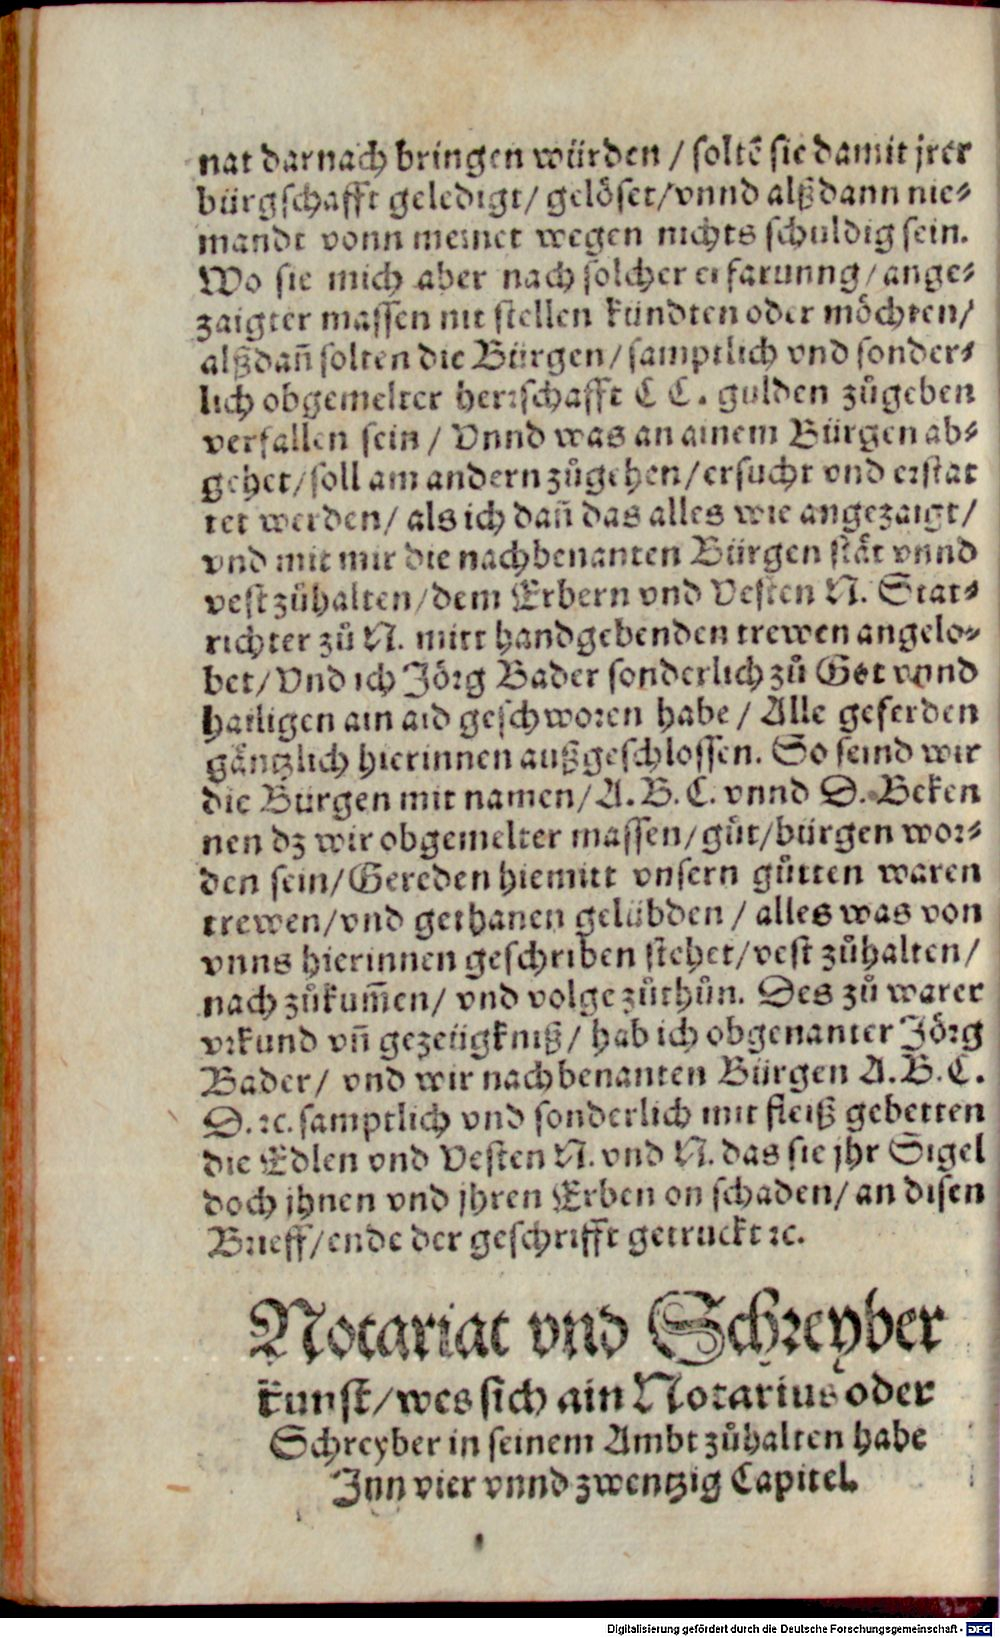 nat darnach bringen würden / soltē sie damit jrer
bürgschafft geledigt / gelöset / vnnd alßdann nie⸗
mandt vonn meinet wegen nichts schuldig sein.
Wo sie mich aber nach solcher erfarunng / ange⸗
zaigter massen nit stellen kündten oder möchten /
alßdañ solten die Bürgen / samptlich vnd sonder⸗
lich obgemelter herrschafft C C. gulden zůgeben
verfallen sein / Vnnd was an ainem Bürgen ab⸗
gehet / soll am andern zůgehen / ersucht vnd erstat
tet werden / als ich dañ das alles wie angezaigt /
vnd mit mir die nachbenanten Bürgen stät vnnd
vest zůhalten / dem Erbern vnd Vesten N. Stat⸗
richter zů N. mitt handgebenden trewen angelo⸗
bet / Vnd ich Jörg Bader sonderlich zů Got vnnd
hailigen ain aid geschworen habe / Alle geferden
gäntzlich hierinnen außgeschlossen. So seind wir
die Bürgen mit namen / A. B. C. vnnd D. Beken
nen dz wir obgemelter massen / gůt / bürgen wor⸗
den sein / Gereden hiemitt vnsern gůtten waren
trewen / vnd gethanen gelübden / alles was von
vnns hierinnen geschriben stehet / vest zůhalten /
nach zůkum̃en / vnd volge zůthůn. Des zů warer
vrkund vñ gezeügkniß / hab ich obgenanter Jörg
Bader / vnd wir nachbenanten Bürgen A. B. C.
D. ⁊c. samptlich vnd sonderlich mit fleiß gebetten
die Edlen vnd Vesten N. vnd N. das sie jhr Sigel
doch jhnen vnd jhren Erben on schaden / an disen
Brieff / ende der geschrifft getruckt ⁊c.
Notariat vnd Schreyber
kunst / wes sich ain Notarius oder
Schreyber in seinem Ambt zůhalten habe
Jnn vier vnnd zwentzig Capitel.
Digitalisierung gefördert durch die Deutsche Forschungsgemeinschaft - DFG